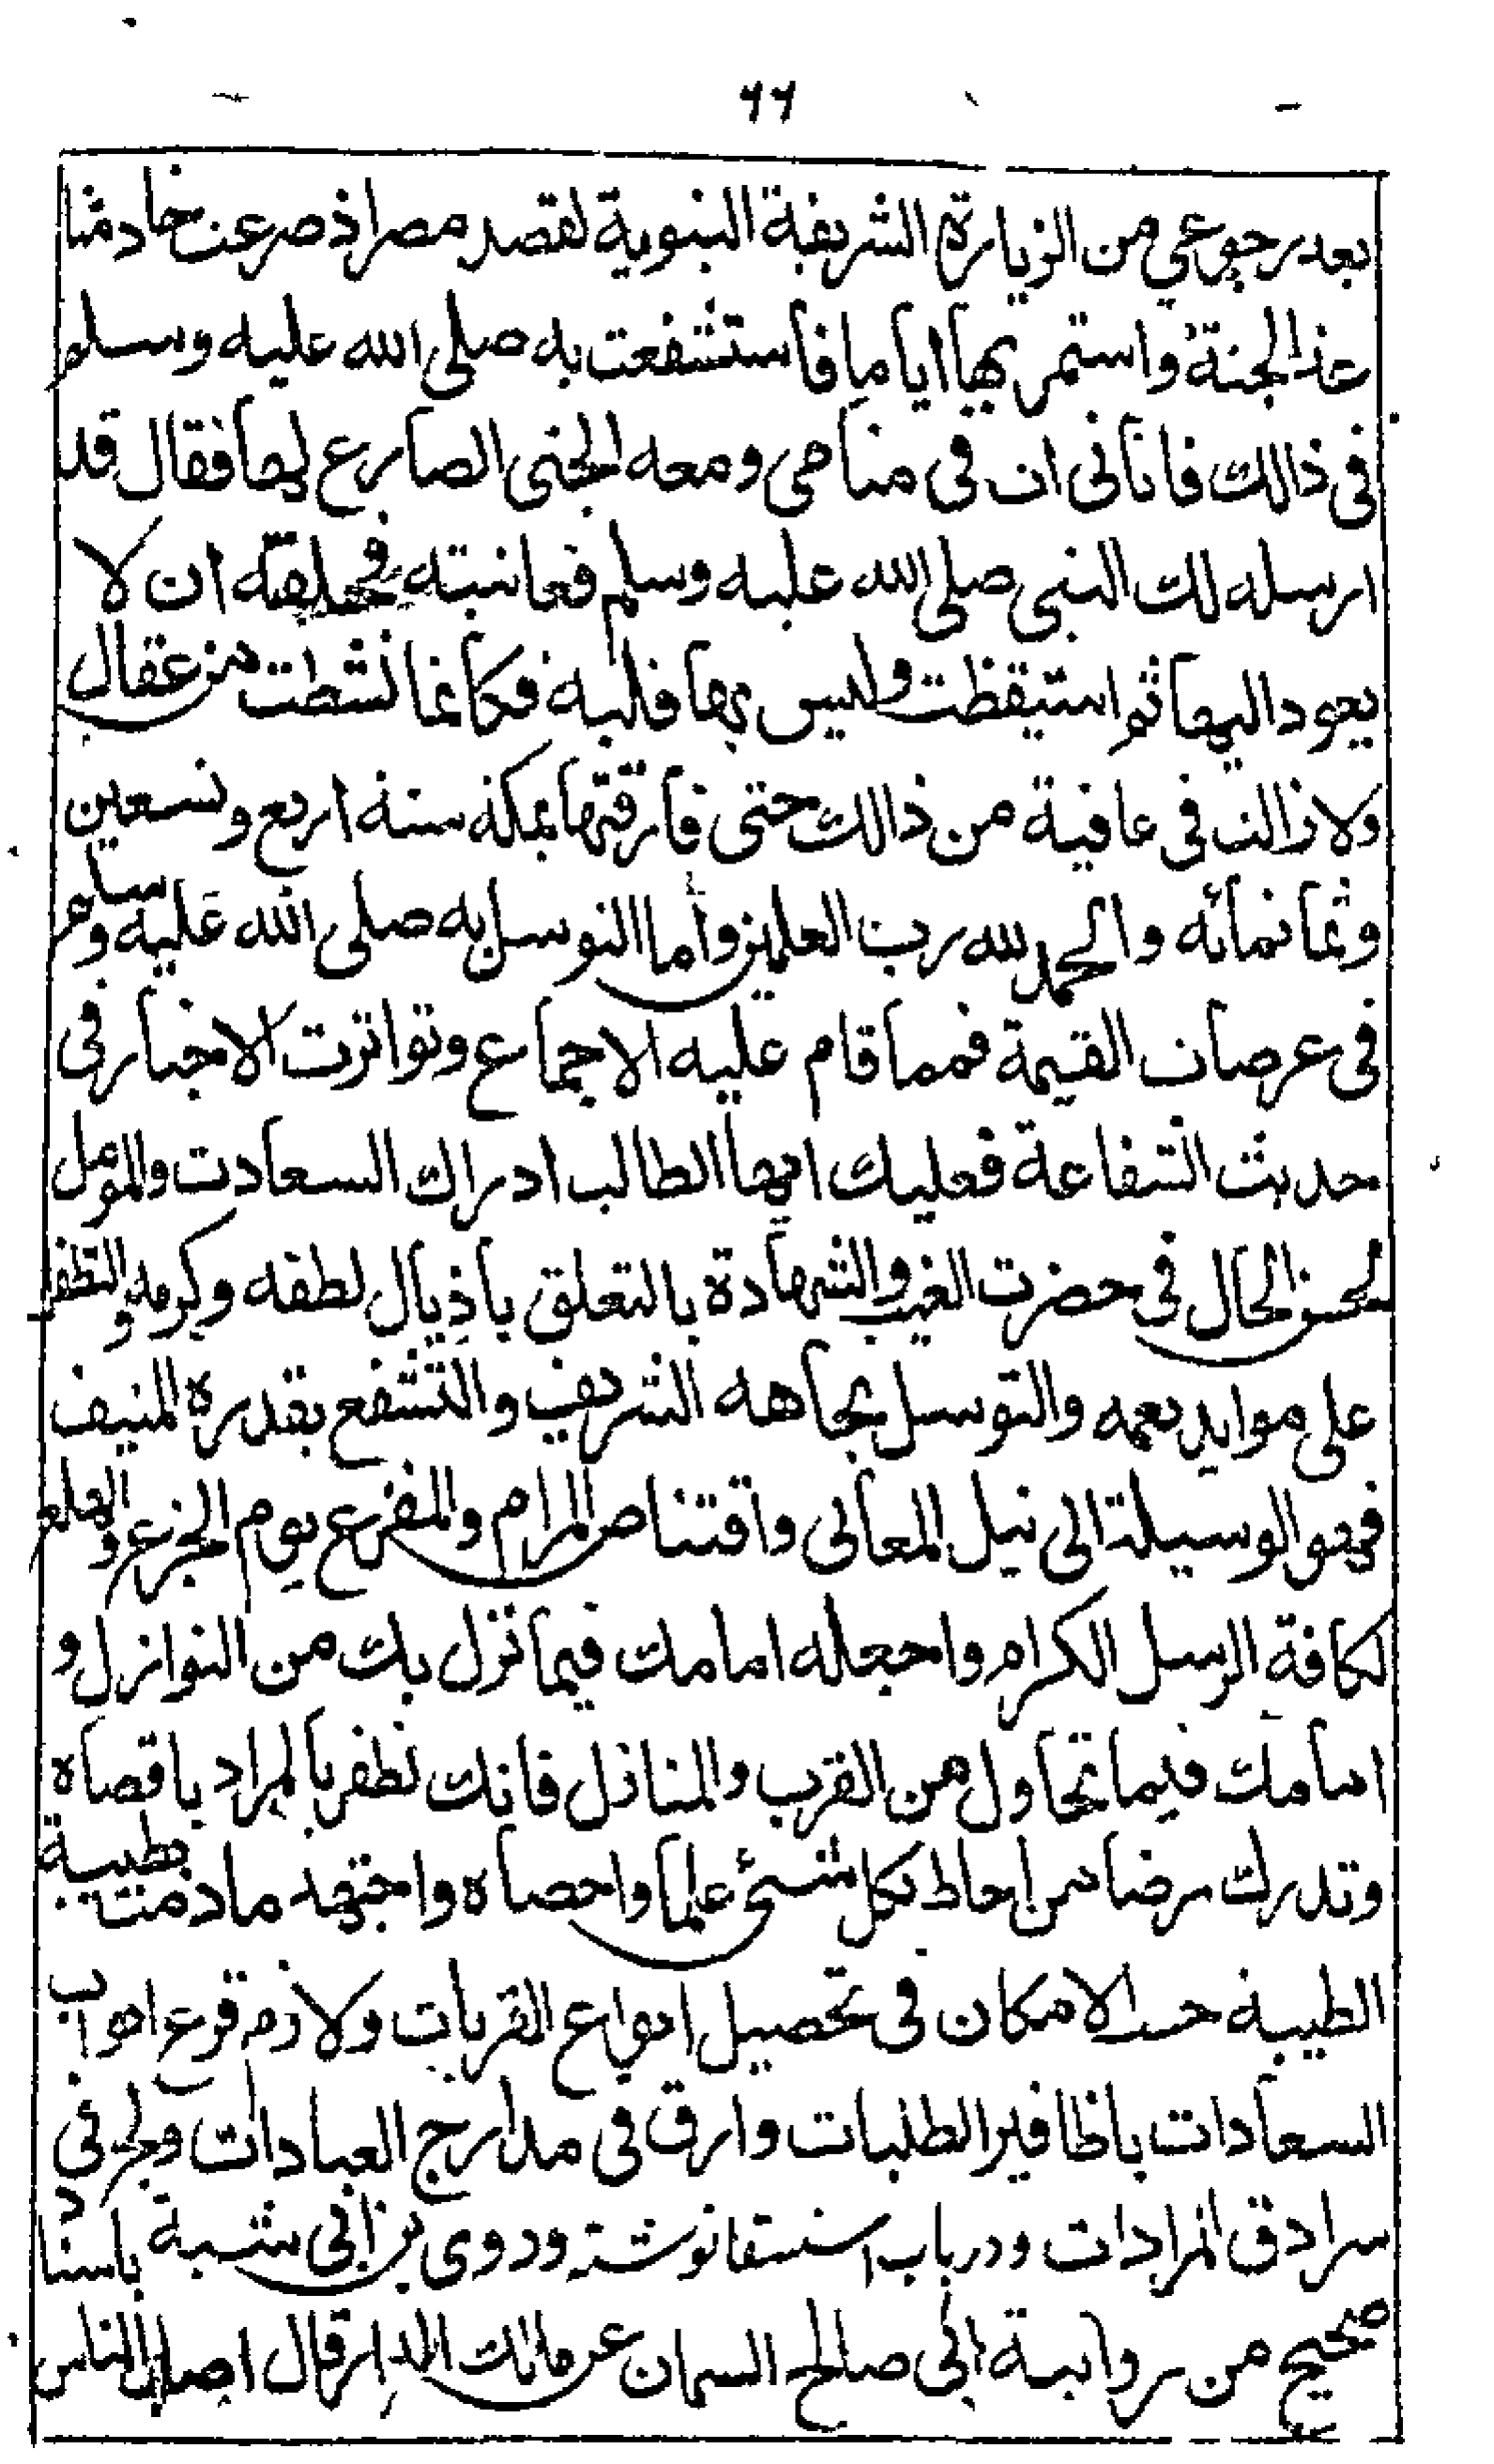 ٦٦
بعد رجوعي من الزيارة الشريفة النبوية لقصد مصر اذ صرعن خادمتنا
عذالجنة واستمر بها اياما فاستشفعت به صلى الله عليه وسلم
فى ذالك فاتانى ات فى منامى ومعه الجنى الصارع لها فقال قد
ارسله لك النبى صلى الله عليه وسلم فعاتبته فحلفته ان لا
يعود اليها ثم استيقظت وليس بها قلبة فكانما نشطت من عقال
ولا زالت فى عافية من ذالك حتى فارقتها بمكة سنة اربع وتسعين
وثمانمائه والحمد لله رب العلمين واما التوسل به صلى الله عليه وسلم
فى عرصات القيمة فمما قام عليه الاجماع وتواترت الاخبار فى
حديث الشفاعة فعليك ايها الطالب ادراك السعادت والمومل
لحسن الحال فى حضرت الغيب والشهادة بالتعلق باذيال لطفه وكرمه والتظفر
على موايد نعمه والتوسل بجاهه الشريف والتشفع بقدره المنيف
فهو الوسيلة الى نيل المعالى واقتناص المرام والمفزع يوم الجزع والهلع
لكافة الرسل الكرام واجعله امامك فيما نزل بك من النوازل و
امامك فيما تحاول من القرب والمنازل فانك تظفر بالمراد باقصاه
وتدرك رضا من احاط بكل شئ علما واحصاه واجتهد ما دمت بطيبة
الطيبة حسب الامكان فى تحصيل انواع القربات ولازم قرع ابواب
السعادات باظافير الطلبات وارق فى مدارج العبادات ولج فى
سرادق المرادات ودر باب استسقا نوشته وروى بن ابى شيبة باسناد
صحيح من رواية ابى صالح السمان عن مالك الدار قال اصاب الناس